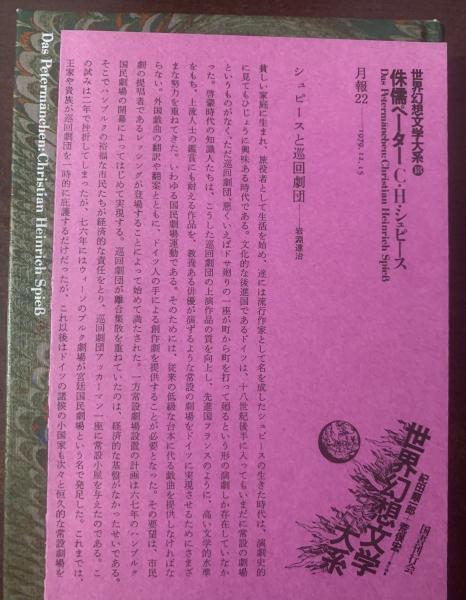 世界幻想文学大系
侏儒ペーター C・H・シュピース
Das Petermänchen: Christian Heinrich Spieß
月報22
1979.12.15
国書刊行会
紀田順一郎+荒俣宏
世界幻想文学大系
シュピースと巡回劇団
岩淵達治
貧しい家庭に生まれ、旅役者として生活を始め、遂には流行作家として名を成したシュピースの生きた時代は、演劇史的
に見てもひじょうに興味ある時代である。文化的な後進国であるドイツは、十八世紀後半に入ってもいまだに常設の劇場
というものがなく、ただ巡回劇団、悪くいえばドサ廻りの一座が町から町を打って廻るという形の演劇しか存在していなか
った。啓蒙時代の知識人たちは、こうした巡回劇団の上演作品の質を向上し、先進国フランスのように、高い文学的水準
をもち、上流人士の鑑賞にも耐える作品を、教養ある俳優が演ずるような常設の劇場をドイツに実現させるためにさまざ
まな努力を重ねてきた。いわゆる国民劇場運動である。そのためには、従来の低級な台本に代る戯曲を提供しなければな
らない。外国戯曲の翻訳や翻案とともに、ドイツ人の手による創作劇を提供することが必要となった。その要望は、市民
劇の提唱者であるレッシングが登場することによって始めて満たされた。一方常設劇場設置の計画は六七年のハンブルク
国民劇場の開幕によってはじめて実現する。巡回劇団が離合集散を重ねていたのは、経済的な基盤がなかったせいである。
そこでハンブルクの裕福な市民たちが経済的な責任をとり、巡回劇団アッカーマン一座に常設小屋を与えたのである。こ
の試みは二年で挫折してしまったが、七六年にはウィーンのブルク劇場が宮廷国民劇場という名で発足した。これまでは、
王家や貴族が巡回劇団を一時的に庇護するだけだったが、これ以後はドイツの諸侯の小国家も次々と恒久的な常設劇場を
Das Petermänchen: Christian Heinrich Spieß